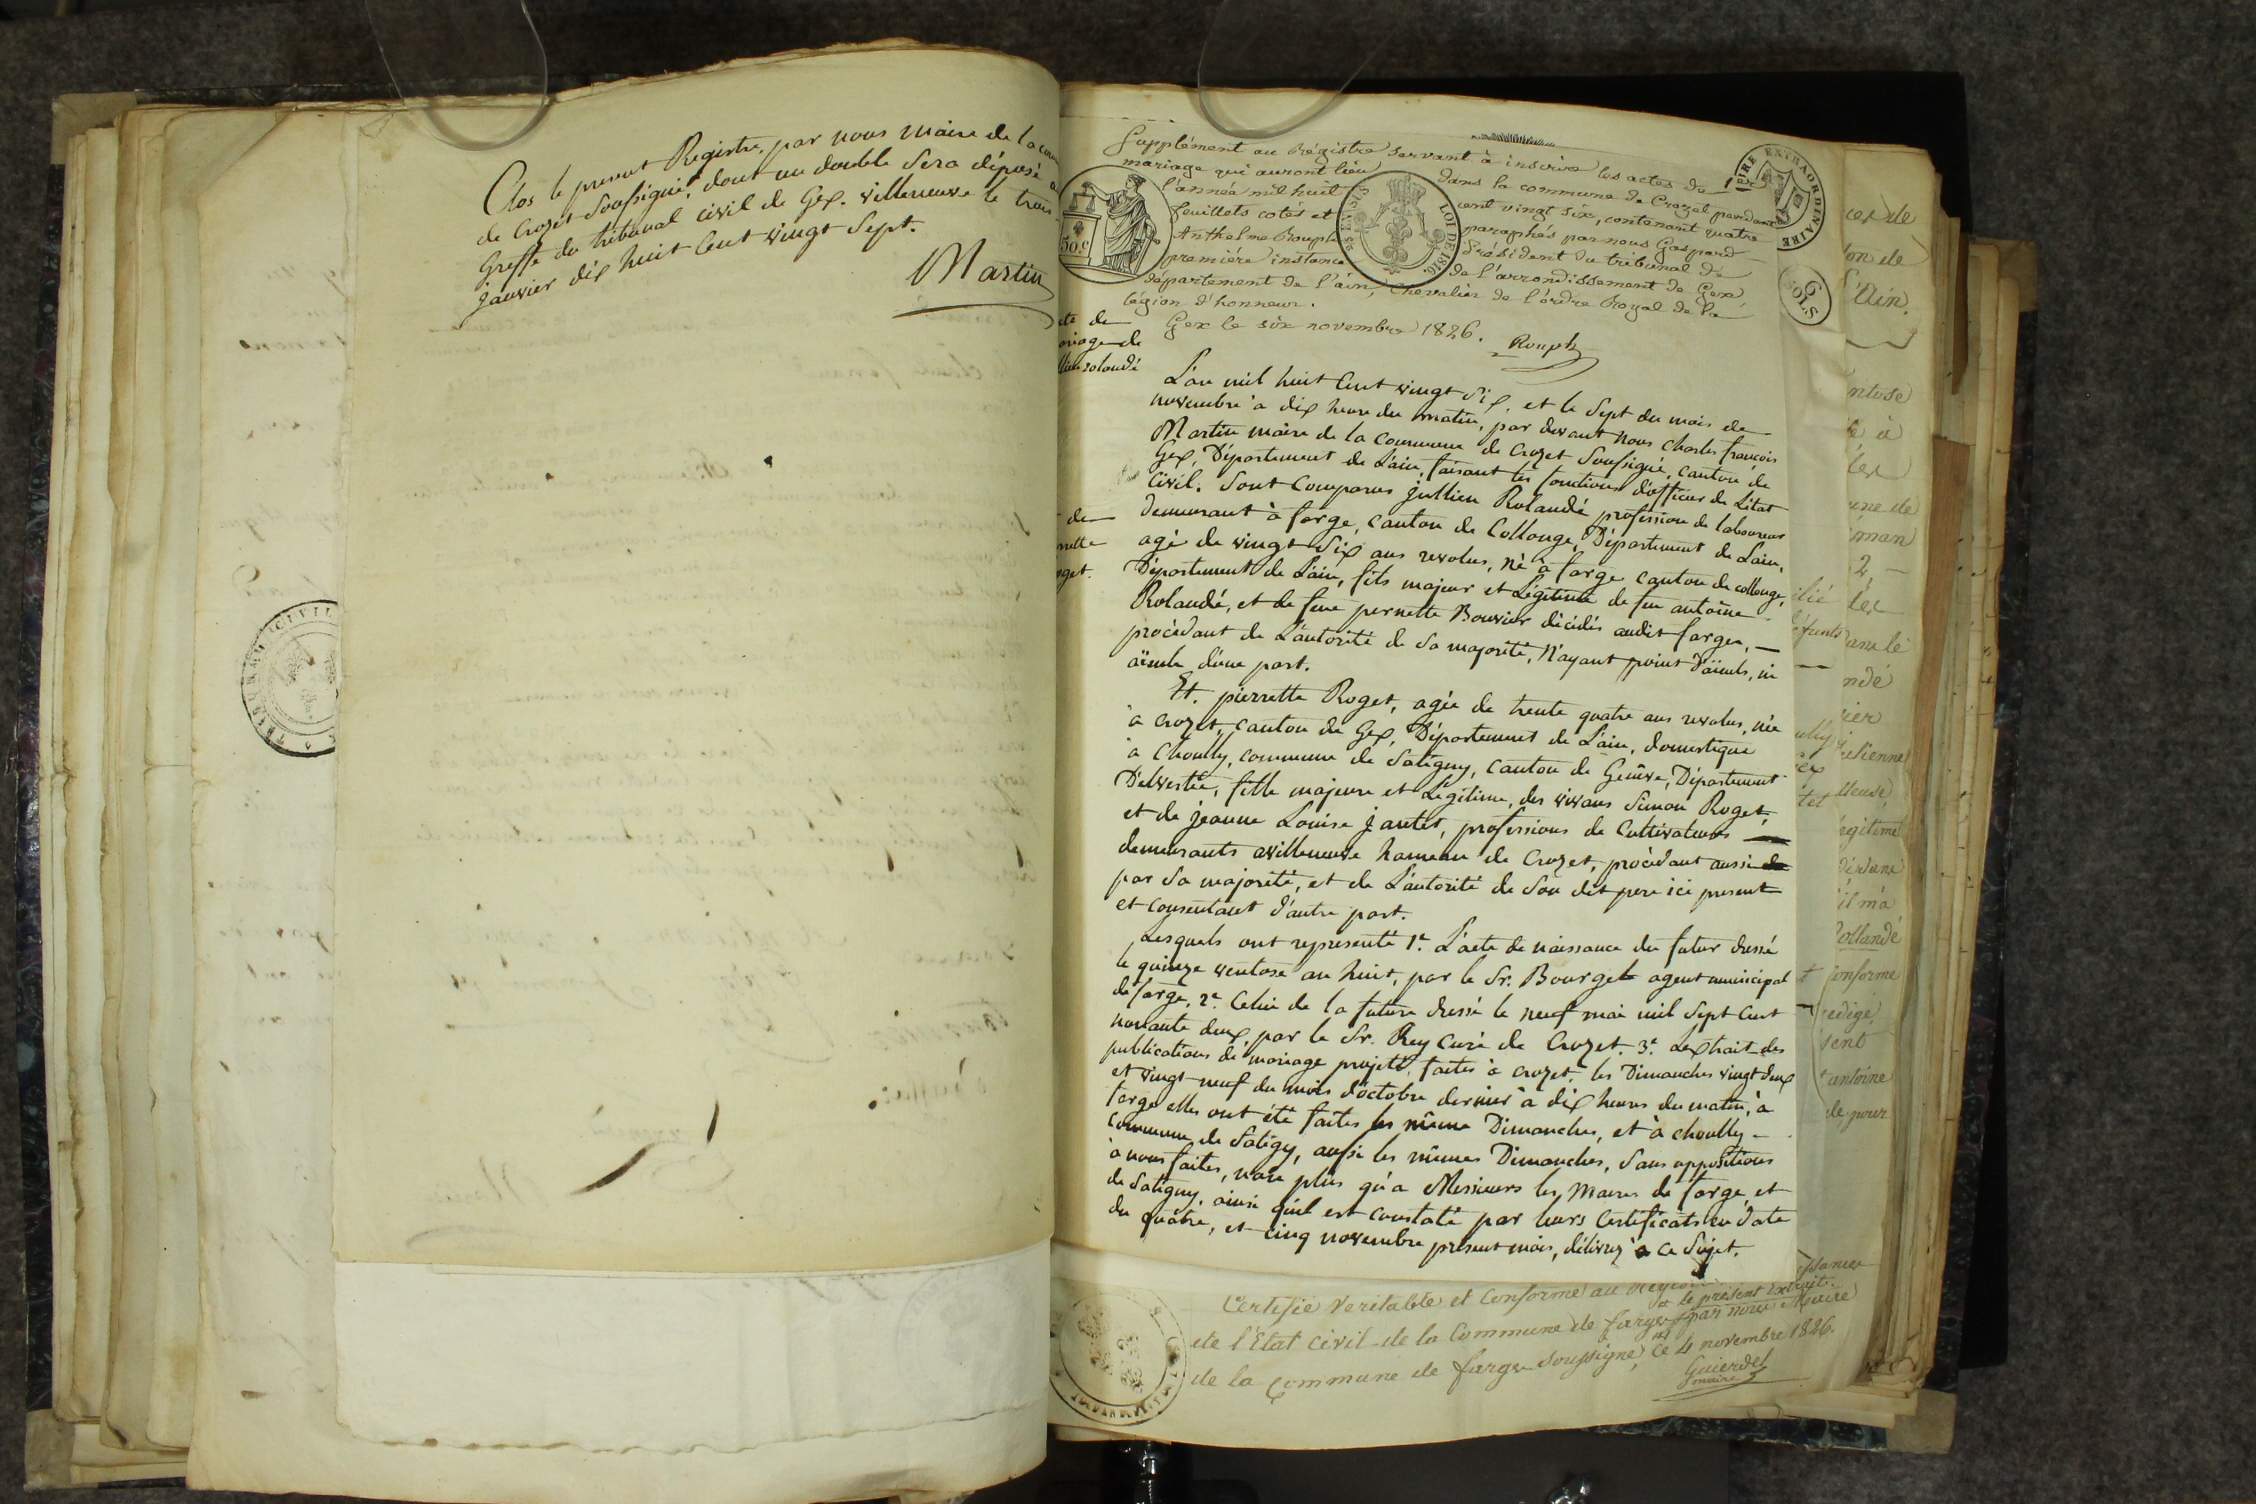 Clos le present Registre, par nous maire de la com
de Crozet Soussigné, dont un double sera déposé a
Greffe du tribunal civil de Gex. villeneuve le trois
janvier dix huit Cent vingt Sept.
Martin
Supplément au Régistre servant à inscrire les actes de
mariage qui auront lieu dans la commune de Crozet pendant
l'année mil huit cent vingt six, contenant quatre
feuillets cotés et paraphés par nous Gaspard
Anthelme Rouph Président du tribunal de
première instance de l'arrondissement de Gex,
département de l'ain, Chevalier de l'ordre Royal de la
légion d'honneur.
Gex le six novembre 1826. Rouph
50 c
LOI DE 1816.
EXTRAORDINAIRE
cte de
ariage de
rolandé
L'an mil huit Cent vingt Six. et le Sept du mois de
novembre à dix heure du matin, par devant nous Charles françois
Martin maire de la Commune de Crozet Soussigné, canton de
Gex, Département de L'ain, faisant les fonctions d'officier de L'état
Civil. Sont Comparus jullien Rolandé profession de laboureur
demeurant à farge, canton de Collonge, Département de Lain,
agé de vingt Six ans revolus, né à farge canton de collonge,
Département de L'ain, fils majeur et Légitime de feu antoine
Rolandé, et de feue pernette Bouvier décédés audit farge, —
procèdant de L'autorité de sa majorité, N'ayant point d'aïeuls, ni
aïeule d'une part.
de
get.
Et. pierrette Roget, agée de trente quatre ans revolus, née
à crozet, canton de Gex, Département de L'ain, domestique
à Choully, commune de Satigny, canton de Genêve, Département
D'elvestie, fille majeure et Légitime, des vivans Simon Roget,
et de jeanne Louise jantet, professions de Cultivateurs
demeurants avilleneuve hameau de Crozet, procèdant aussi
par sa majorité, et de L'autorité de son dit pere ici present
et consentant d'autre part.
Lesquels ont representé 1e. L'acte de naissance du futur dressé
le quinze ventose an huit, par le Sr. Bourget agent municipal
de farge, 2e. Celui de la future dressé le neuf mai mil Sept Cent
nonante deux, par le Sr. Rey curé de Crozet. 3e. Lextrait des
publications de mariage projetté, faites à crozet, les Dimanches vingt deux
et vingt neuf du mois d'octobre dernier à dix heures du matin, à
farge elles ont été faites les même Dimanches, et à choully -
Commune de Satigy, aussi les mêmes Dimanches, Sans oppositions
à nous faites, non plus qu'a Messieurs les Maires de farge, et
de Satigny, ainsi quil est constaté par leurs Certificats en date
du quatre, et cinq novembre présent mois, délivrez à ce Sujet.
Certifié Veritable et Conforme au
et le présent Extrait
de l'Etat civil de la Commune de farges par nous Maire
de la Commune de farge soussigné, ce 4 novembre 1826.
Guierdet
maire
l'Ain.
ventose
Conforme
redigé
antoine